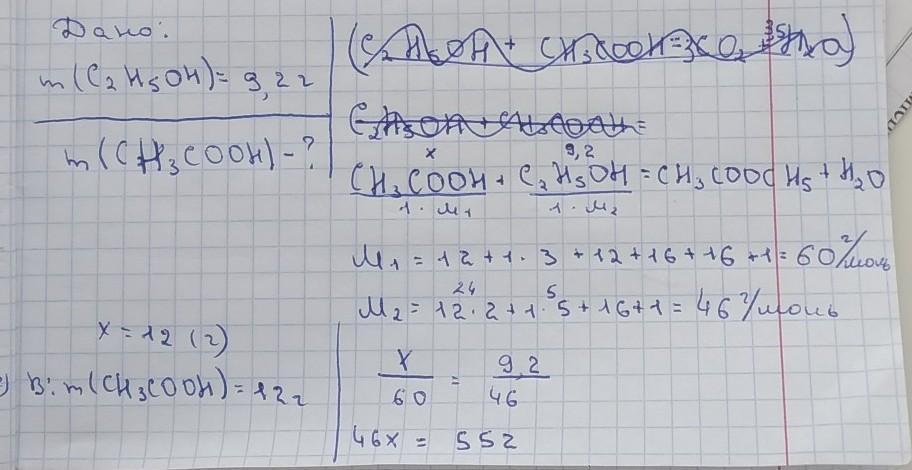 Дано:
m(C₂H₅OH)= 9,2 г
m(CH₃COOH) - ?
(C₂H₅OH + CH₃COOH=3CO₂ H₂O)
C₂H₅OH + CH₃COOH=
x 9,2
CH₃COOH + C₂H₅OH = CH₃COOC H₅ + H₂O
1 · M₁ 1 · M₂
M₁ = 12 + 1 · 3 + 12 + 16 + 16 + 1 = 60 г/моль
24 5
M₂ = 12 · 2 + 1 · 5 + 16 + 1 = 46 г/моль
x/60 = 9,2/46
46x = 552
x = 12 (г)
В: m(CH₃COOH) = 12 г